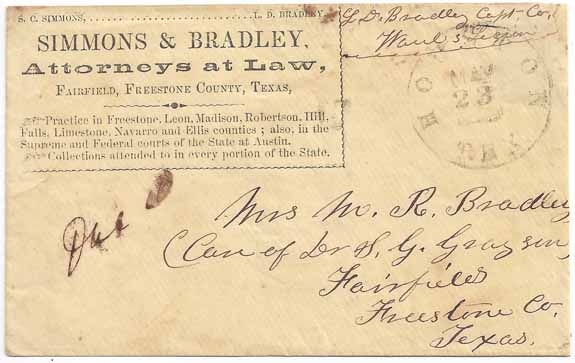 S. C. SIMMONS, L. D. BRADLEY.
SIMMONS & BRADLEY,
Attorneys at Law,
FAIRFIELD, FREESTONE COUNTY, TEXAS,
Practice in Freestone, Leon, Madison, Robertson, Hill,
Falls, Limestone, Navarro and Ellis counties; also, in the
Supreme and Federal courts of the State at Austin.
Collections attended to in every portion of the State.
L. D. Bradley Capt Co.
Waul's Legion
HO ON
MAY
23
TEX
Due
Mrs M. R. Bradley
(Care of Dr S. G. Grayson)
Fairfield
Freestone Co.
Texas.